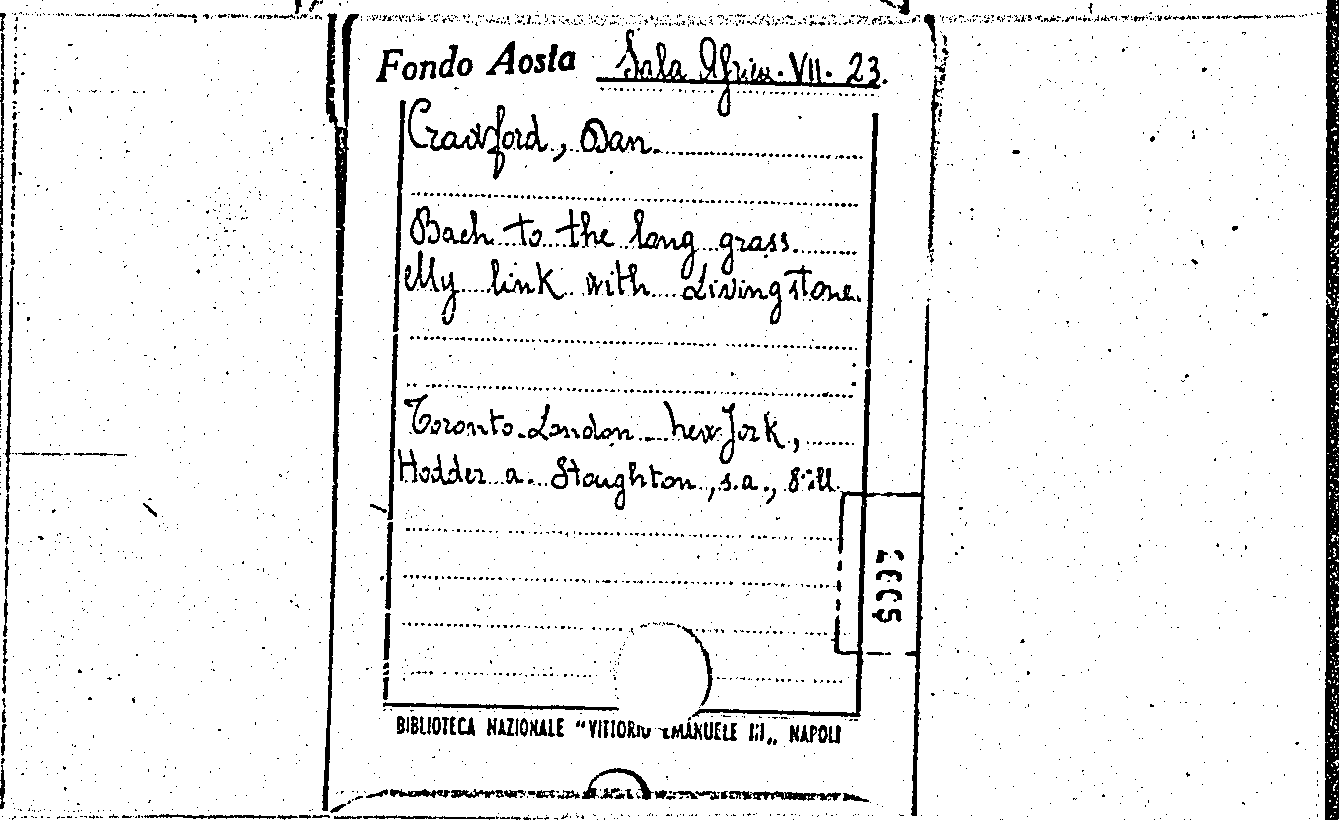 Fondo Aosta Sala Africa. VII. 23.
Crawford, Dan.
Back to the long grass.
My link with Livingstone.
Toronto. London New Jork,
Hodder a. Stoughton, s.a., 8° ill.
BIBLIOTECA NAZIONALE "VITTORIO EMANUELE III„ NAPOLI